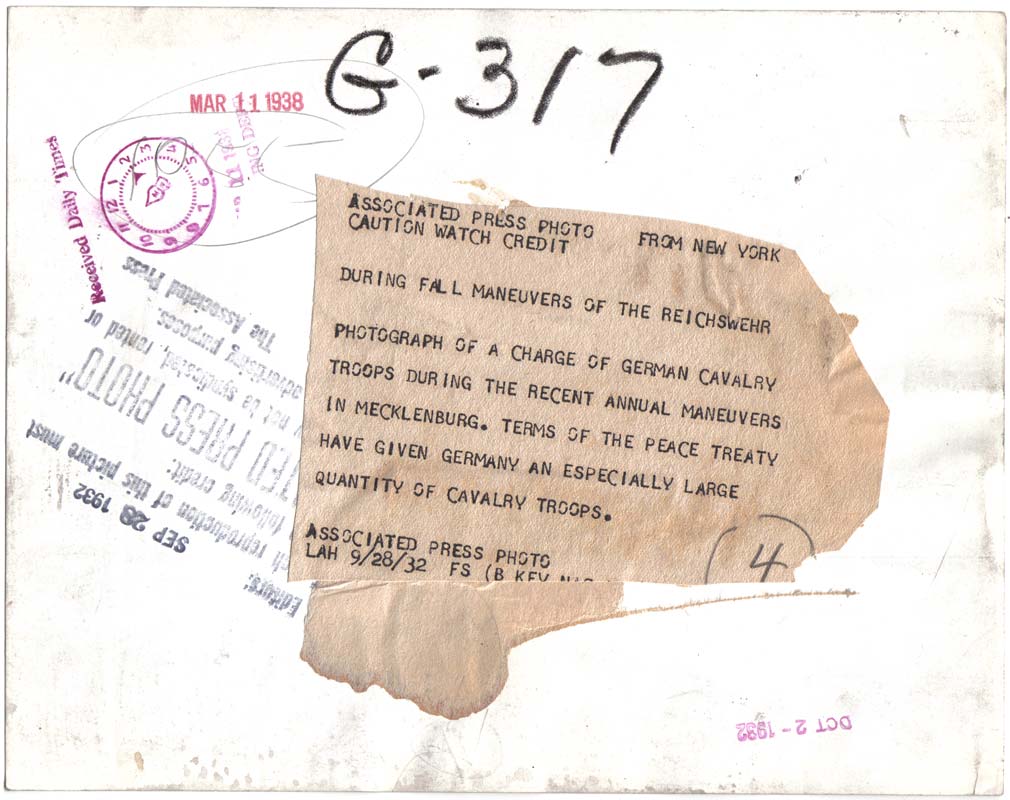 G-317
MAR 11 1938
1 2 3 4 5 6 7 8 9 10 11 12
Received Daily Times
ASSOCIATED PRESS PHOTO FROM NEW YORK
CAUTION WATCH CREDIT
DURING FALL MANEUVERS OF THE REICHSWEHR
PHOTOGRAPH OF A CHARGE OF GERMAN CAVALRY
TROOPS DURING THE RECENT ANNUAL MANEUVERS
IN MECKLENBURG. TERMS OF THE PEACE TREATY
HAVE GIVEN GERMANY AN ESPECIALLY LARGE
QUANTITY OF CAVALRY TROOPS.
ASSOCIATED PRESS PHOTO
LAH 9/28/32 FS (B KEY
4
Editors:
reproduction of this picture must
following credit:
TED PRESS PHOTO"
not be syndicated, rented or
advertising purposes.
The Associated Press
SEP 28 1932
OCT 2 - 1932